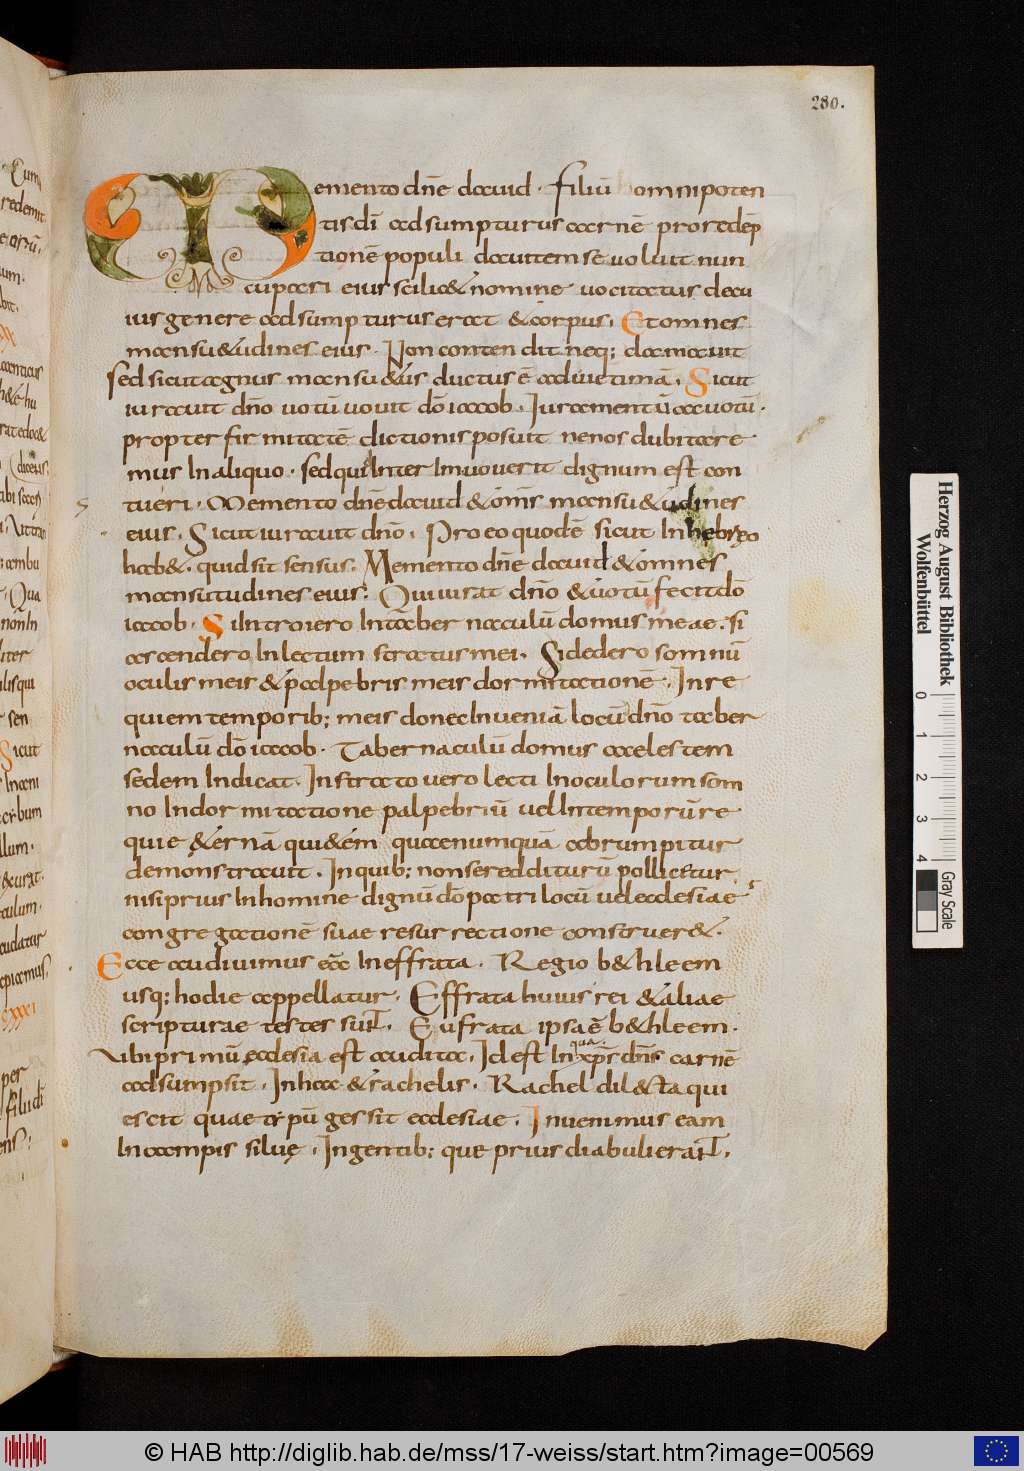 280.
Memento dn̄e dauid · filiū omnipoten
tis dī adsumpturus carnē pro redēp
tionē populi dauitem sē uoluit nun
cupari eius scilic& nomine uocitatus de cu
ius genere adsumpturus erat & corpus. Et omnes
mansu&udines eius · Non contendit neq; damauit
sed sicut agnus mansu&us ductus ē ad uictimā. Sicut
iurauit dn̄o uotū uouit dō iacob. Iuramentū ac uotū.
propter firmitatē dictionis posuit ne nos dubitare
mus In aliquo · sed qui Inter Im uouerit dignum est con
tueri · Memento dn̄e dauid & om̄s mansu&udines
eius. Sicut iurauit dn̄o. Pro eo quodē sicut In hebręo
hab&. quid sit sensus. Memento dn̄e dauid & omnes
mansuetudines eius. Qui iurat dn̄o & uotū fecit dō
iacob. Si Introiero In tabernaculū domus meae. si
ascendero In lectum stratus mei. Si dedero somnū
oculis meis & palpebris meis dormitationē. In re
quiem temporib; meis donec Inueniā locū dn̄o taber
naculū dō iacob. Tabernaculū domus caelestem
sedem Indicat. In strato uero lecti In oculorum som
no In dormitatione palpebriū uel In temporū re
quie &ernā qui&em quae numquā abrumpitur
demonstrauit. In quib; non se redditurū pollicetur.
nisi prius In homine dignū dō patri locū uel ecclesiae
congregationē suae resurrectione construer&.
Ecce audiuimus eā In effrata. Regio b&hleem
usq; hodie appellatur. Effrata huius rei & aliae
scripturae testes sunt. Eufrata ipsa ē b&hleem.
Ubi primū ecclesia est audita. Id est In qua xp̄s dn̄s carnē
adsumpsit. In hac & rachelis. Rachel dilecta qui
escit quae tȳpū gessit ecclesiae. Inuenimus eam
In campis siluę. In gentib; que prius diabuli erant.
Herzog August Bibliothek
Wolfenbüttel
0 1 2 3 4
Gray Scale
© HAB http://diglib.hab.de/mss/17-weiss/start.htm?image=00569